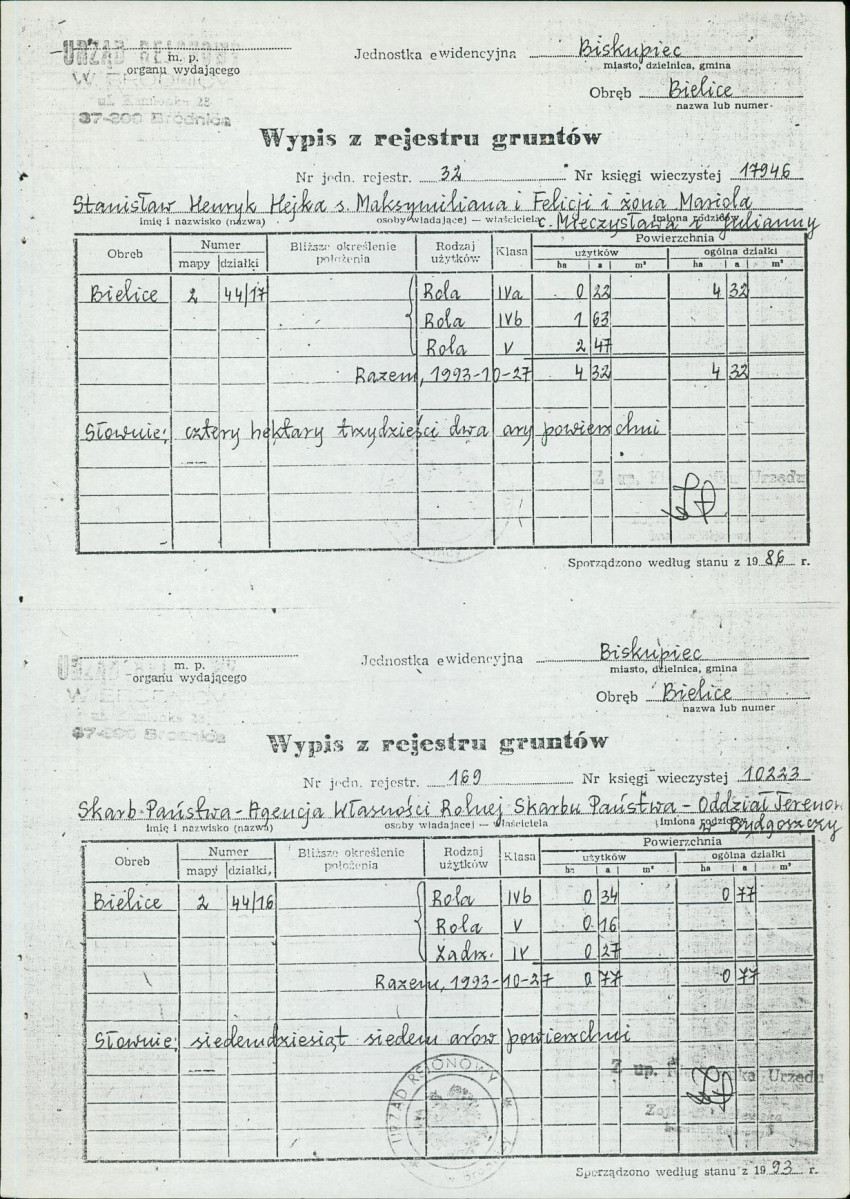 URZĄD REJONOWY
m. p.
organu wydającego
ul. 28
87-300 Brodnica
Jednostka ewidencyjna Biskupiec
miasto, dzielnica, gmina
Obręb Bielice
nazwa lub numer
Wypis z rejestru gruntów
Nr jedn. rejestr. 32 Nr księgi wieczystej 17946
Stanisław Henryk Hejka s. Maksymiliana i Felicji i żona Mariola
imię i nazwisko (nazwa) osoby władającej — właściciela imiona rodziców
c. Mieczysława i Julianny
Obręb Numer Bliższe określenie położenia Rodzaj użytków Klasa Powierzchnia
mapy działki użytków ogólna działki
ha a m² ha a m²
Bielice 2 44/17 Rola IVa 0 22 4 32
Rola IVb 1 63
Rola V 2 47
Razem, 1993-10-27 4 32 4 32
Słownie: cztery hektary trzydzieści dwa ary powierzchni
Z up. Urzędu
Sporządzono według stanu z 1986 r.
m. p.
organu wydającego
87-300 Brodnica
Jednostka ewidencyjna Biskupiec
miasto, dzielnica, gmina
Obręb Bielice
nazwa lub numer
Wypis z rejestru gruntów
Nr jedn. rejestr. 169 Nr księgi wieczystej 10223
Skarb Państwa - Agencja Własności Rolnej Skarbu Państwa - Oddział Terenow
imię i nazwisko (nazwa) osoby władającej — właściciela imiona rodziców
w Bydgoszczy
Obręb Numer Bliższe określenie położenia Rodzaj użytków Klasa Powierzchnia
mapy działki, użytków ogólna działki
ha a m² ha a m²
Bielice 2 44/16 Rola IVb 0 34 0 77
Rola V 0 16
Zadrz. IV 0 27
Razem, 1993-10-27 0 77 0 77
Słownie: siedemdziesiąt siedem arów powierzchni
Z up. Urzędu
URZĄD REJONOWY
Sporządzono według stanu z 1993 r.